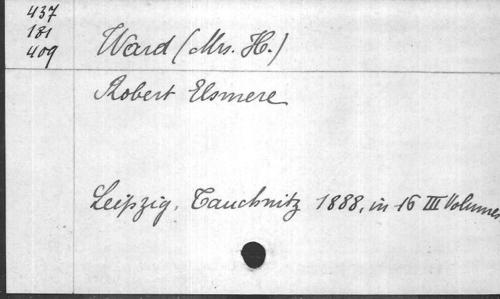 437
181
409
Ward (Mrs. H.)
Robert Elsmere
Leipzig, Tauchnitz 1888, in 16 III Volumes